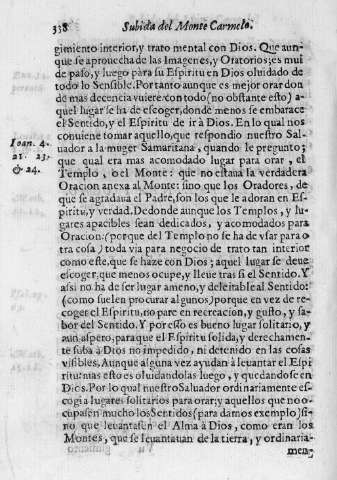 338 Subida del Monte Carmelo.
gimiento interior, y trato mental con Dios. Que aun-
que se aprouecha de las Imagenes, y Oratorios; es mui
de paso, y luego pàra su Espiritu en Dios oluidado de
todo lo Sensible. Por tanto aunque es mejor orar don
de mas decencia vuiere: con todo (no obstante esto) a-
quel lugar se ha de escoger, donde menos se embarace
el Sentido, y el Espiritu de ir à Dios. En lo qual nos
conviene tomar aquello, que respondio nuestro Sal-
Ioan. 4. uador a la muger Samaritana, quando le pregunto;
21. 23. que qual era mas acomodado lugar para orar, el
& 24. Templo, ò el Monte: que no estaua la verdadera
Oracion anexa al Monte: sino que los Oradores, de
que se agradaua el Padre, son los que le adoran en Es-
piritu, y verdad. De donde aunque los Templos, y lu-
gares apacibles sean dedicados, y acomodados para
Oracion: (porque del Templo no se ha de vsar para o
tra cosa) toda via para negocio de trato tan interior
como este, que se haze con Dios; aquel lugar se deue
escoger, que menos ocupe, y lleue tras si el Sentido. Y
assi no ha de ser lugar ameno, y deleitable al Sentido:
(como suelen procurar algunos) porque en vez de re-
coger el Espiritu, no pare en recreacion, y gusto, y sa-
bor del Sentido. Y por esso es bueno lugar solitario, y
aun aspero; para que el Espiritu solida, y derechamen-
te suba à Dios no impedido, ni detenido en las cosas
visibles. Aunque alguna vez ayudan à leuantar el Espi
ritu: mas esto es oluidandolas luego, y quedandose en
Dios. Por lo qual nuestro Saluador ordinariamente es-
cogia lugares solitarios para orar; y aquellos que no o-
cupasen mucho los Sentidos (para darnos exemplo) si-
no que leuantasen el Alma à Dios, como eran los
Montes, que se leuantauan de la tierra, y ordinaria-
men-